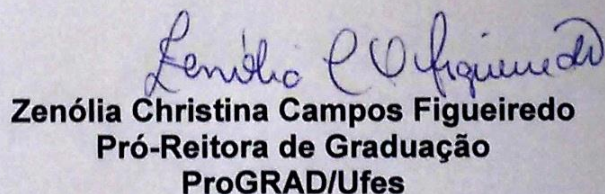 Zenólia C C Figueiredo
Zenólia Christina Campos Figueiredo
Pró-Reitora de Graduação
ProGRAD/Ufes